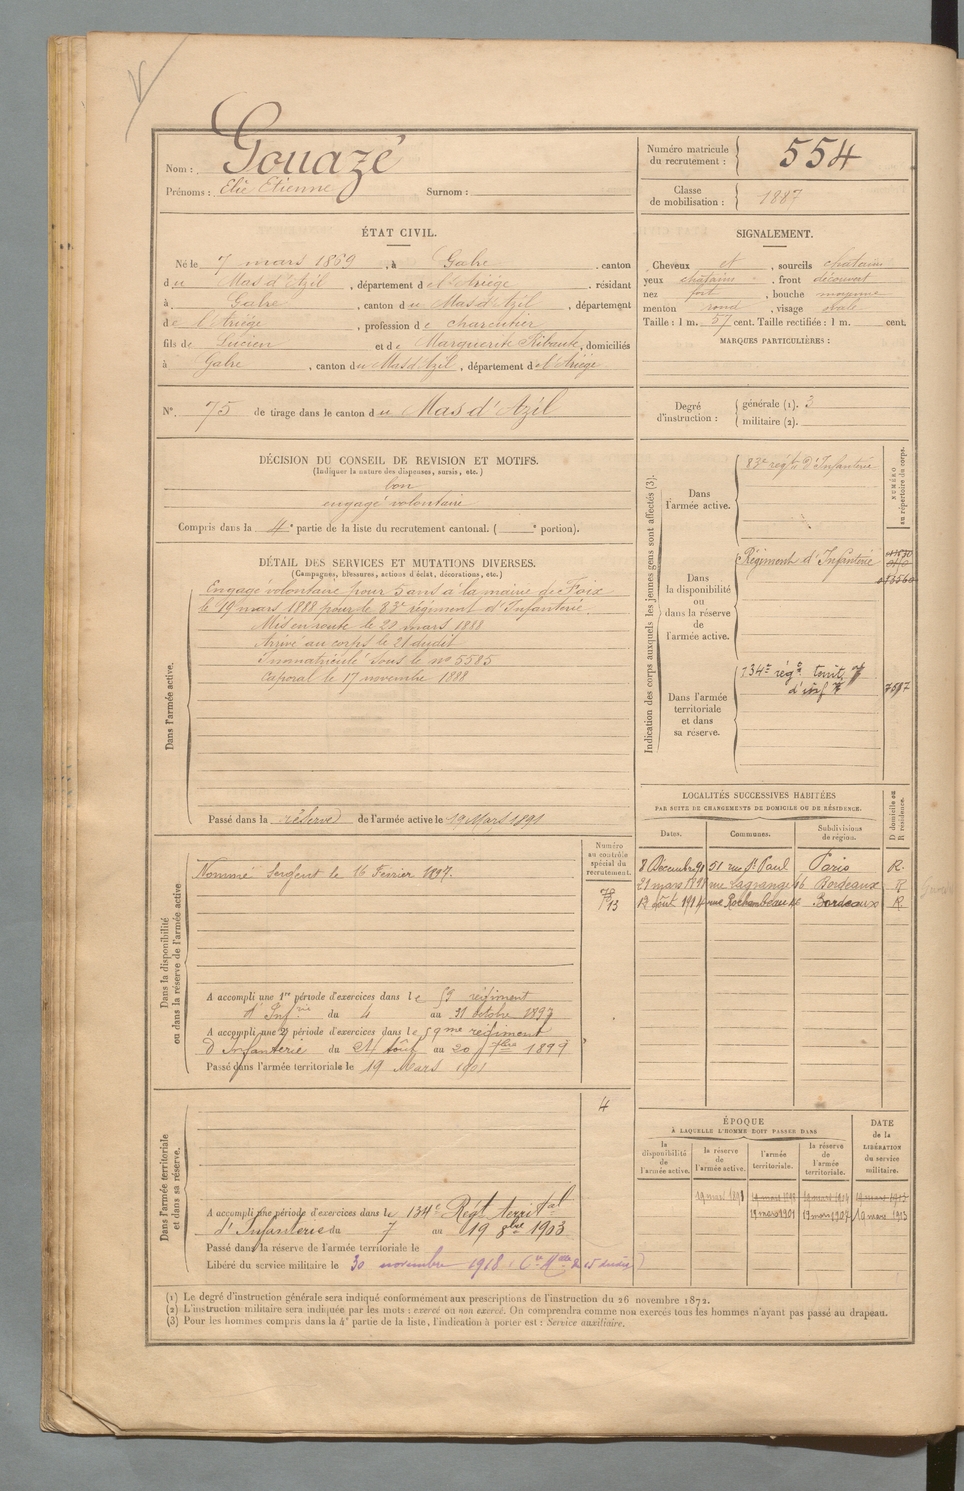 Nom : Gouazé
Prénoms : Elie Etienne Surnom :
Numéro matricule du recrutement : 554
Classe de mobilisation : 1887
ÉTAT CIVIL.
Né le 7 mars 1869, à Gabre, canton
du Mas d'Azil, département de l'Ariège, résidant
à Gabre, canton du Mas d'Azil, département
de l'Ariège, profession de charcutier
fils de Lucien et de Marguerite Ribaute, domiciliés
à Gabre, canton du Mas d'Azil, département de l'Ariège
N° 75 de tirage dans le canton du Mas d'Azil
SIGNALEMENT.
Cheveux et, sourcils chatains
yeux chatains, front découvert
nez fort, bouche moyenne
menton rond, visage ovale
Taille : 1 m. 57 cent. Taille rectifiée : 1 m. cent.
MARQUES PARTICULIÈRES :
Degré d'instruction : générale (1). 3
militaire (2).
DÉCISION DU CONSEIL DE REVISION ET MOTIFS.
(Indiquer la nature des dispenses, sursis, etc.)
bon
engagé volontaire
Compris dans la 4e partie de la liste du recrutement cantonal. ( e portion).
DÉTAIL DES SERVICES ET MUTATIONS DIVERSES.
(Campagnes, blessures, actions d'éclat, décorations, etc.)
Dans l'armée active.
Engagé volontaire pour 5 ans à la mairie de Foix
le 19 mars 1888 pour le 83e régiment d'Infanterie.
Mis en route le 20 mars 1888
Arrivé au corps le 21 dudit
Immatriculé sous le no 5585
Caporal le 17 novembre 1888
Passé dans la réserve de l'armée active le 19 Mars 1891
Dans la disponibilité ou dans la réserve de l'armée active
Numéro au contrôle spécial du recrutement.
Nommé Sergent le 16 Février
A accompli une 1re période d'exercices dans le 59 régiment
d'Infrie du 4 au 31 Octobre
A accompli une 2e période d'exercices dans le 59me régiment
d'Infanterie du 24 Août au 20 7bre 1899
Passé dans l'armée territoriale le 19 Mars 1901
Dans l'armée territoriale et dans sa réserve.
4
A accompli une période d'exercices dans le 134e Régt territal
d'Infanterie du 7 au 19 8bre 1903
Passé dans la réserve de l'armée territoriale le
Libéré du service militaire le 30 novembre 1918
Indication des corps auxquels les jeunes gens sont affectés (3).
NUMÉRO au répertoire du corps.
Dans l'armée active.
83e régt d'Infanterie
Dans la disponibilité ou dans la réserve de l'armée active.
Régiment d'Infanterie
Dans l'armée territoriale et dans sa réserve.
134e régt territ
d'inf
LOCALITÉS SUCCESSIVES HABITÉES
PAR SUITE DE CHANGEMENTS DE DOMICILE OU DE RÉSIDENCE.
Dates. Communes. Subdivisions de région. D domicile ou R résidence.
8 Décembre 91 51 rue St Paul Paris R.
21 mars rue Lagrange Bordeaux R
12 Août 1914 rue Rochambeau Bordeaux R.
ÉPOQUE
À LAQUELLE L'HOMME DOIT PASSER DANS
la disponibilité de l'armée active. la réserve de l'armée active. l'armée territoriale. la réserve de l'armée territoriale. DATE de la LIBÉRATION du service militaire.
19 mars 1891
19 mars 1901 19 mars 1907 19 mars 1913
(1) Le degré d'instruction générale sera indiqué conformément aux prescriptions de l'instruction du 26 novembre 1872.
(2) L'instruction militaire sera indiquée par les mots : exercé ou non exercé. On comprendra comme non exercés tous les hommes n'ayant pas passé au drapeau.
(3) Pour les hommes compris dans la 4e partie de la liste, l'indication à porter est : Service auxiliaire.